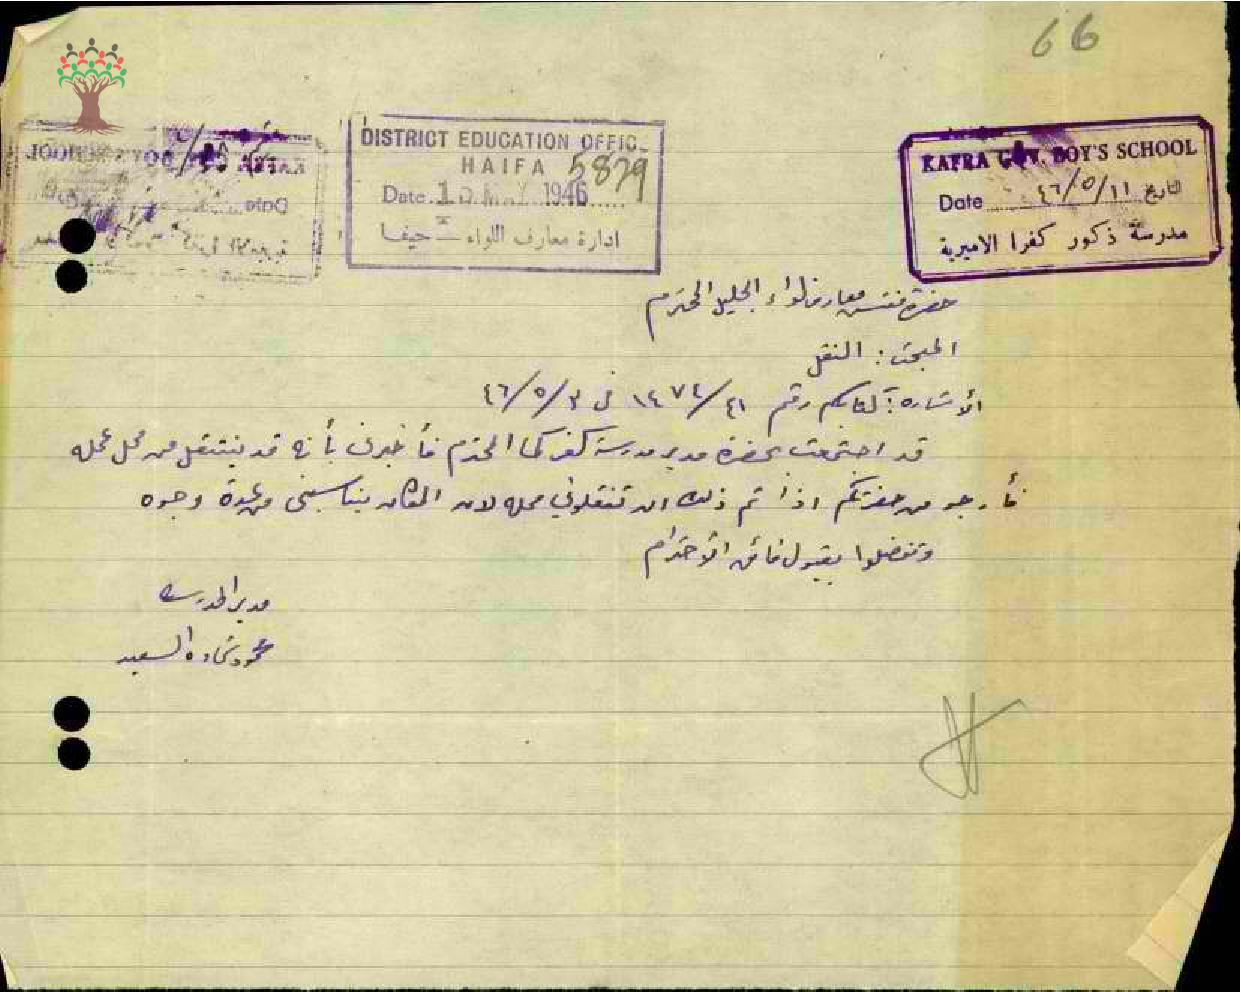 66
DISTRICT EDUCATION OFFIC
HAIFA 5829
Date 1946
ادارة معارف اللواء - حيفا
KAFRA GOV. BOY'S SCHOOL
Date ٤٦/٥/١١ التاريخ
مدرسة ذكور كفرا الاميرية
حضرة مفتش معارف لواء الجليل المحترم
المبحث: النقل
الاشارة: كتابكم رقم ١٤٧٤/٤١ في ٤٦/٥/٣
قد اجتمعت بحضرة مدير مدرسة كفر كما المحترم فأخبرني بأنه قد ينتقل من محل عمله
فأرجو من حضرتكم اذا تم ذلك ان تنقلوني محله لان المكان يناسبني من عدة وجوه
وتفضلوا بقبول فائق الاحترام
مدير المدرسة
محمود شحاده السعيد